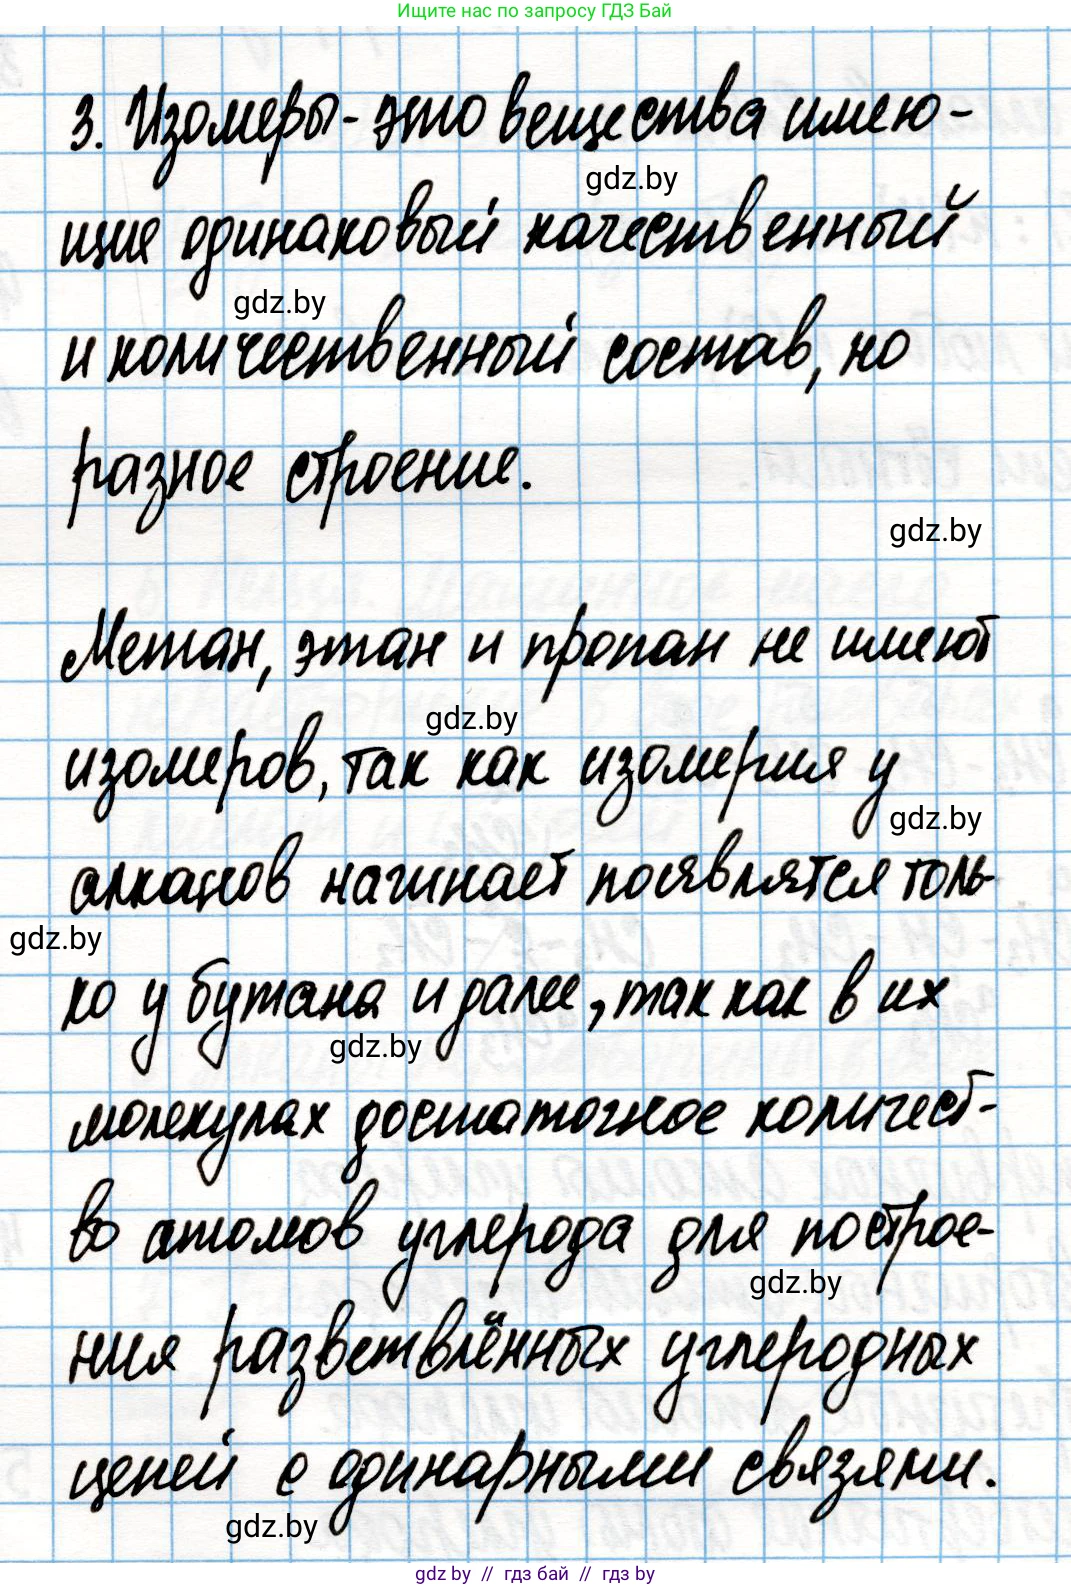 Ищите нас по запросу ГДЗ Бай
3. Изомеры - это вещества имею-
gdz.by
щие одинаковый качественный
gdz.by
и количественный состав, но
разное строение.
gdz.by
Метан, этан и пропан не имеют
gdz.by
изомеров, так как изомерия у
gdz.by
алканов начинает появлятся толь-
gdz.by
ко у бутана и далее, так как в их
gdz.by
молекулах достаточное количест-
во атомов углерода для построе-
gdz.by
ния разветвлённых углеродных
цепей с одинарными связями.
gdz.by
gdz.by // гдз бай // гдз by